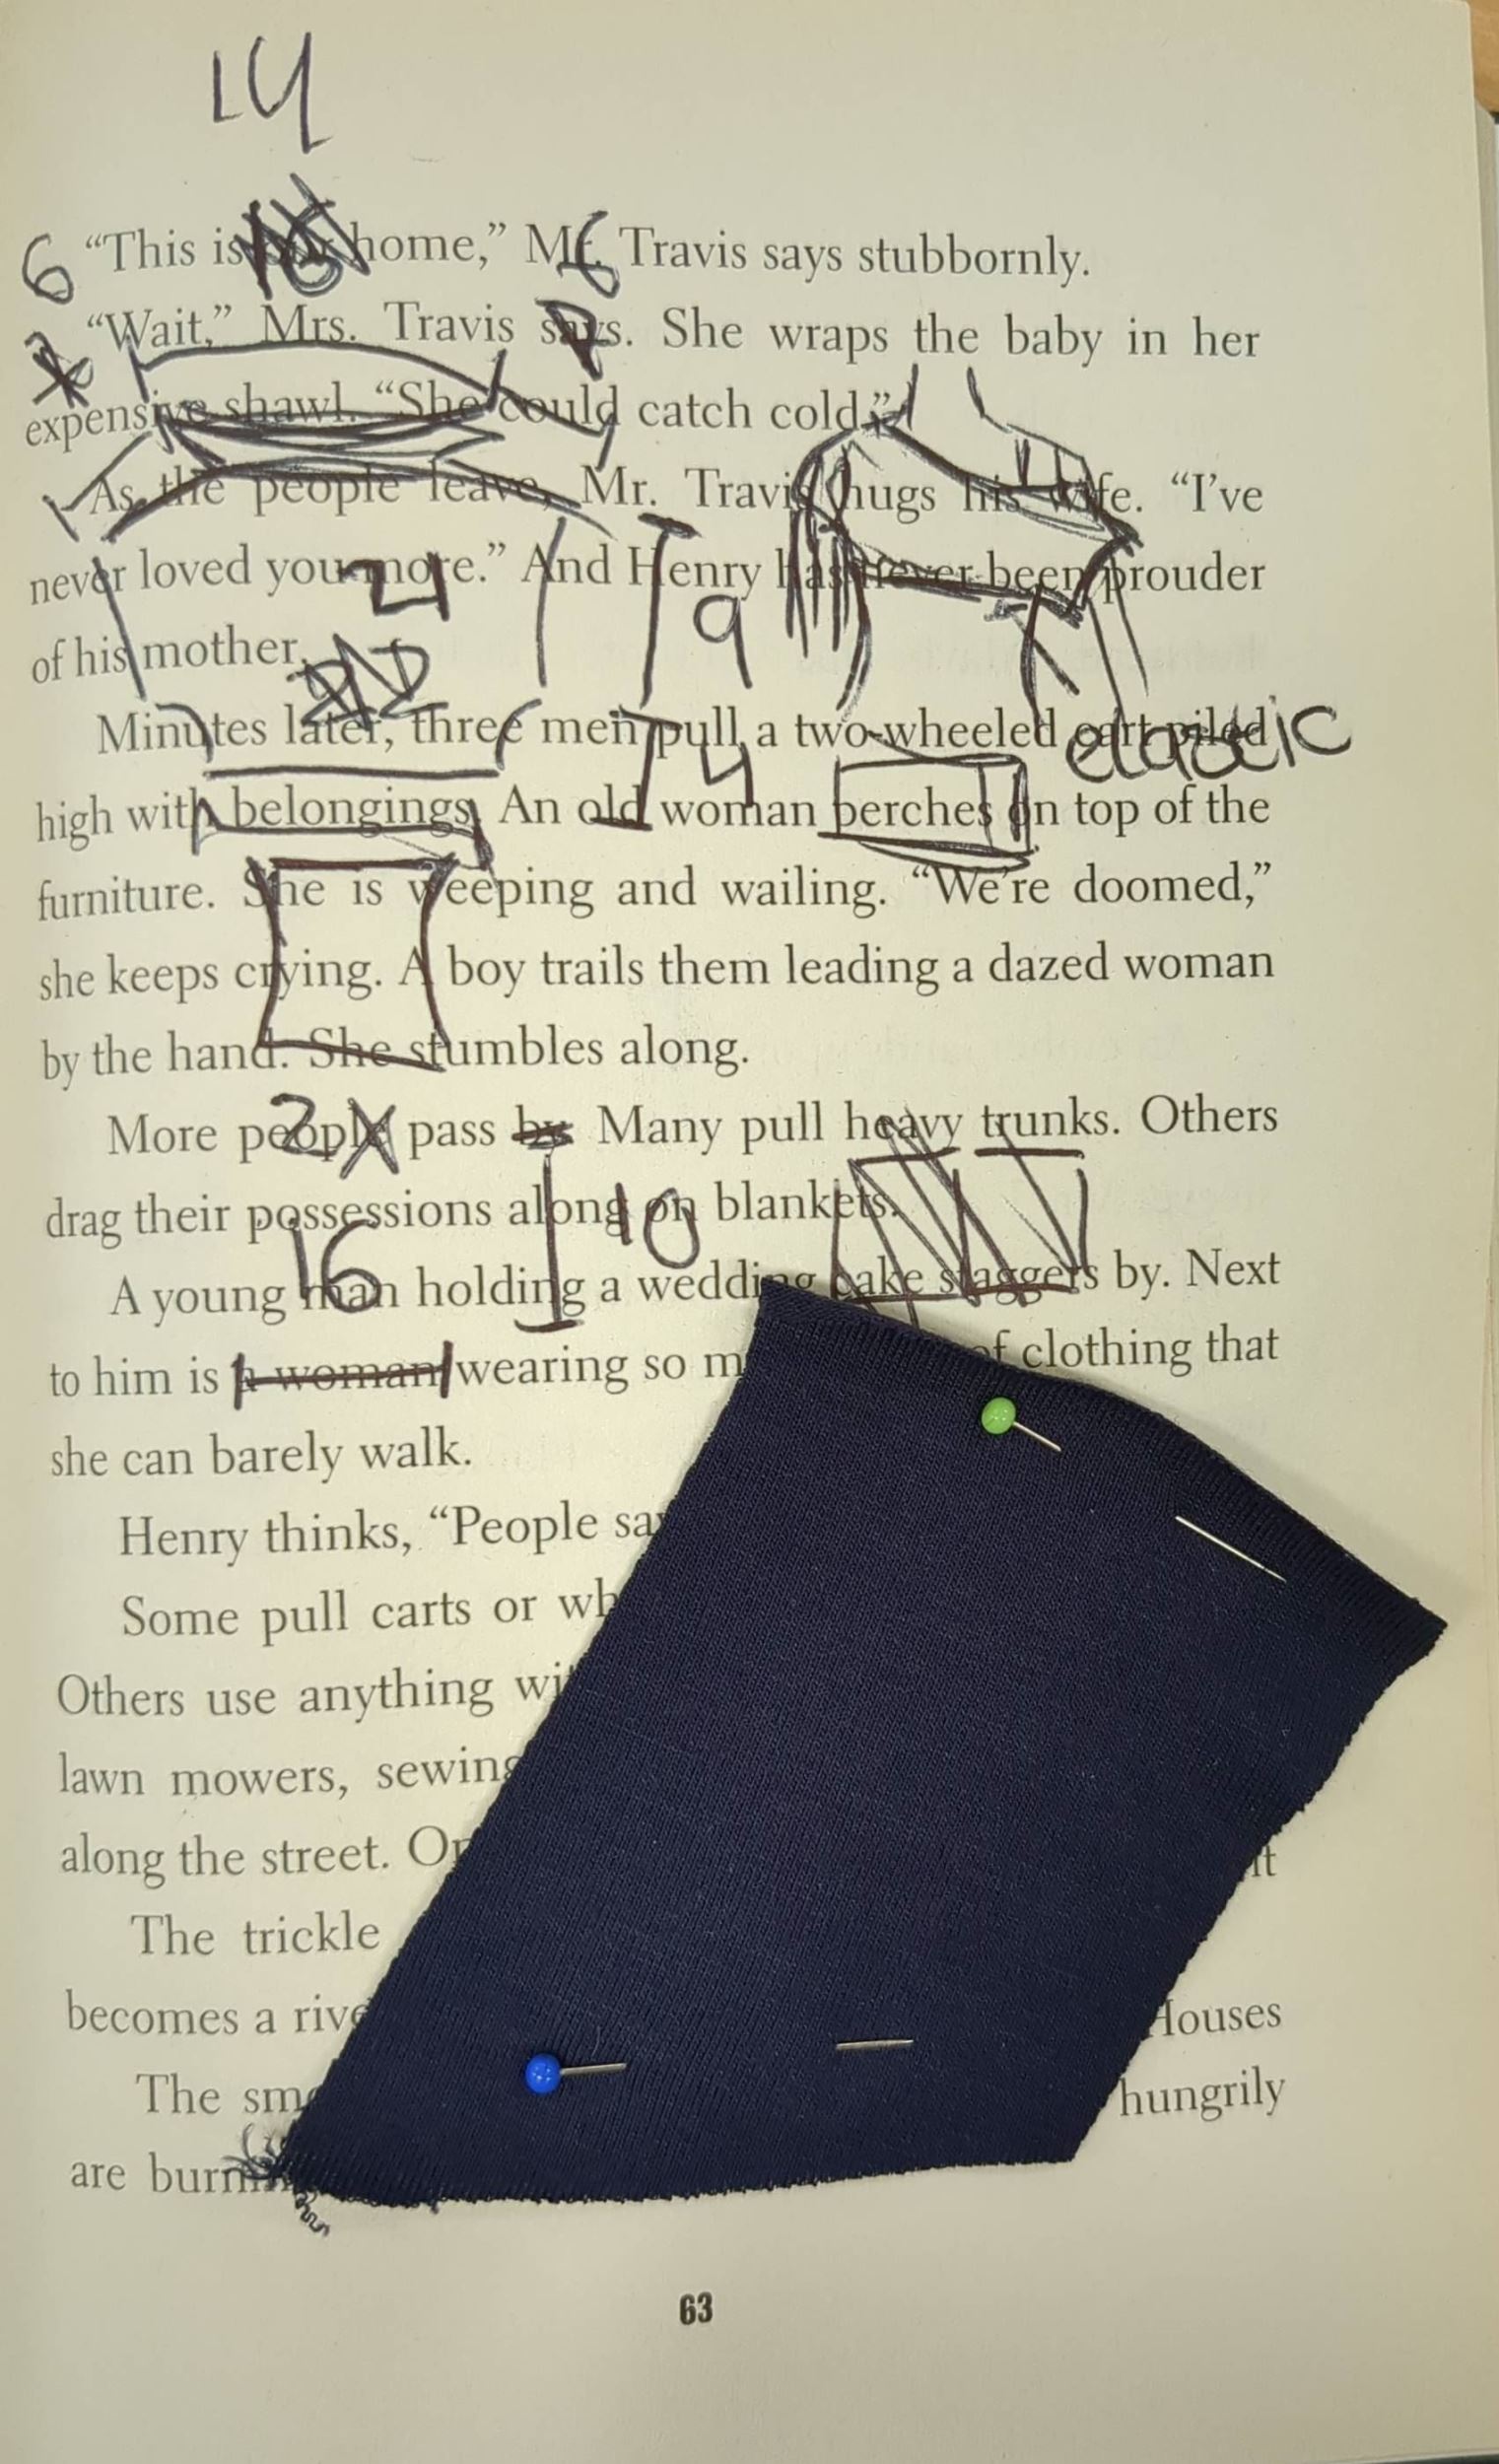 14
6 "This is home," Mr. Travis says stubbornly.
6
"Wait," Mrs. Travis says. She wraps the baby in her
expensive shawl. "She could catch cold."
As the people leave, Mr. Travis hugs his wife. "I've
never loved you more." And Henry has never been prouder
21
9
of his mother.
Minutes later, three men pull a two-wheeled cart piled
elastic
14
high with belongings. An old woman perches on top of the
furniture. She is weeping and wailing. "We're doomed,"
she keeps crying. A boy trails them leading a dazed woman
by the hand. She stumbles along.
More people pass by. Many pull heavy trunks. Others
2X
drag their possessions along on blankets.
16
10
A young man holding a wedding cake staggers by. Next
to him is a woman wearing so of clothing that
she can barely walk.
Henry thinks, "People
Some pull carts or
Others use anything
lawn mowers,
along the street.
The trickle
becomes a Houses
The hungrily
are
63